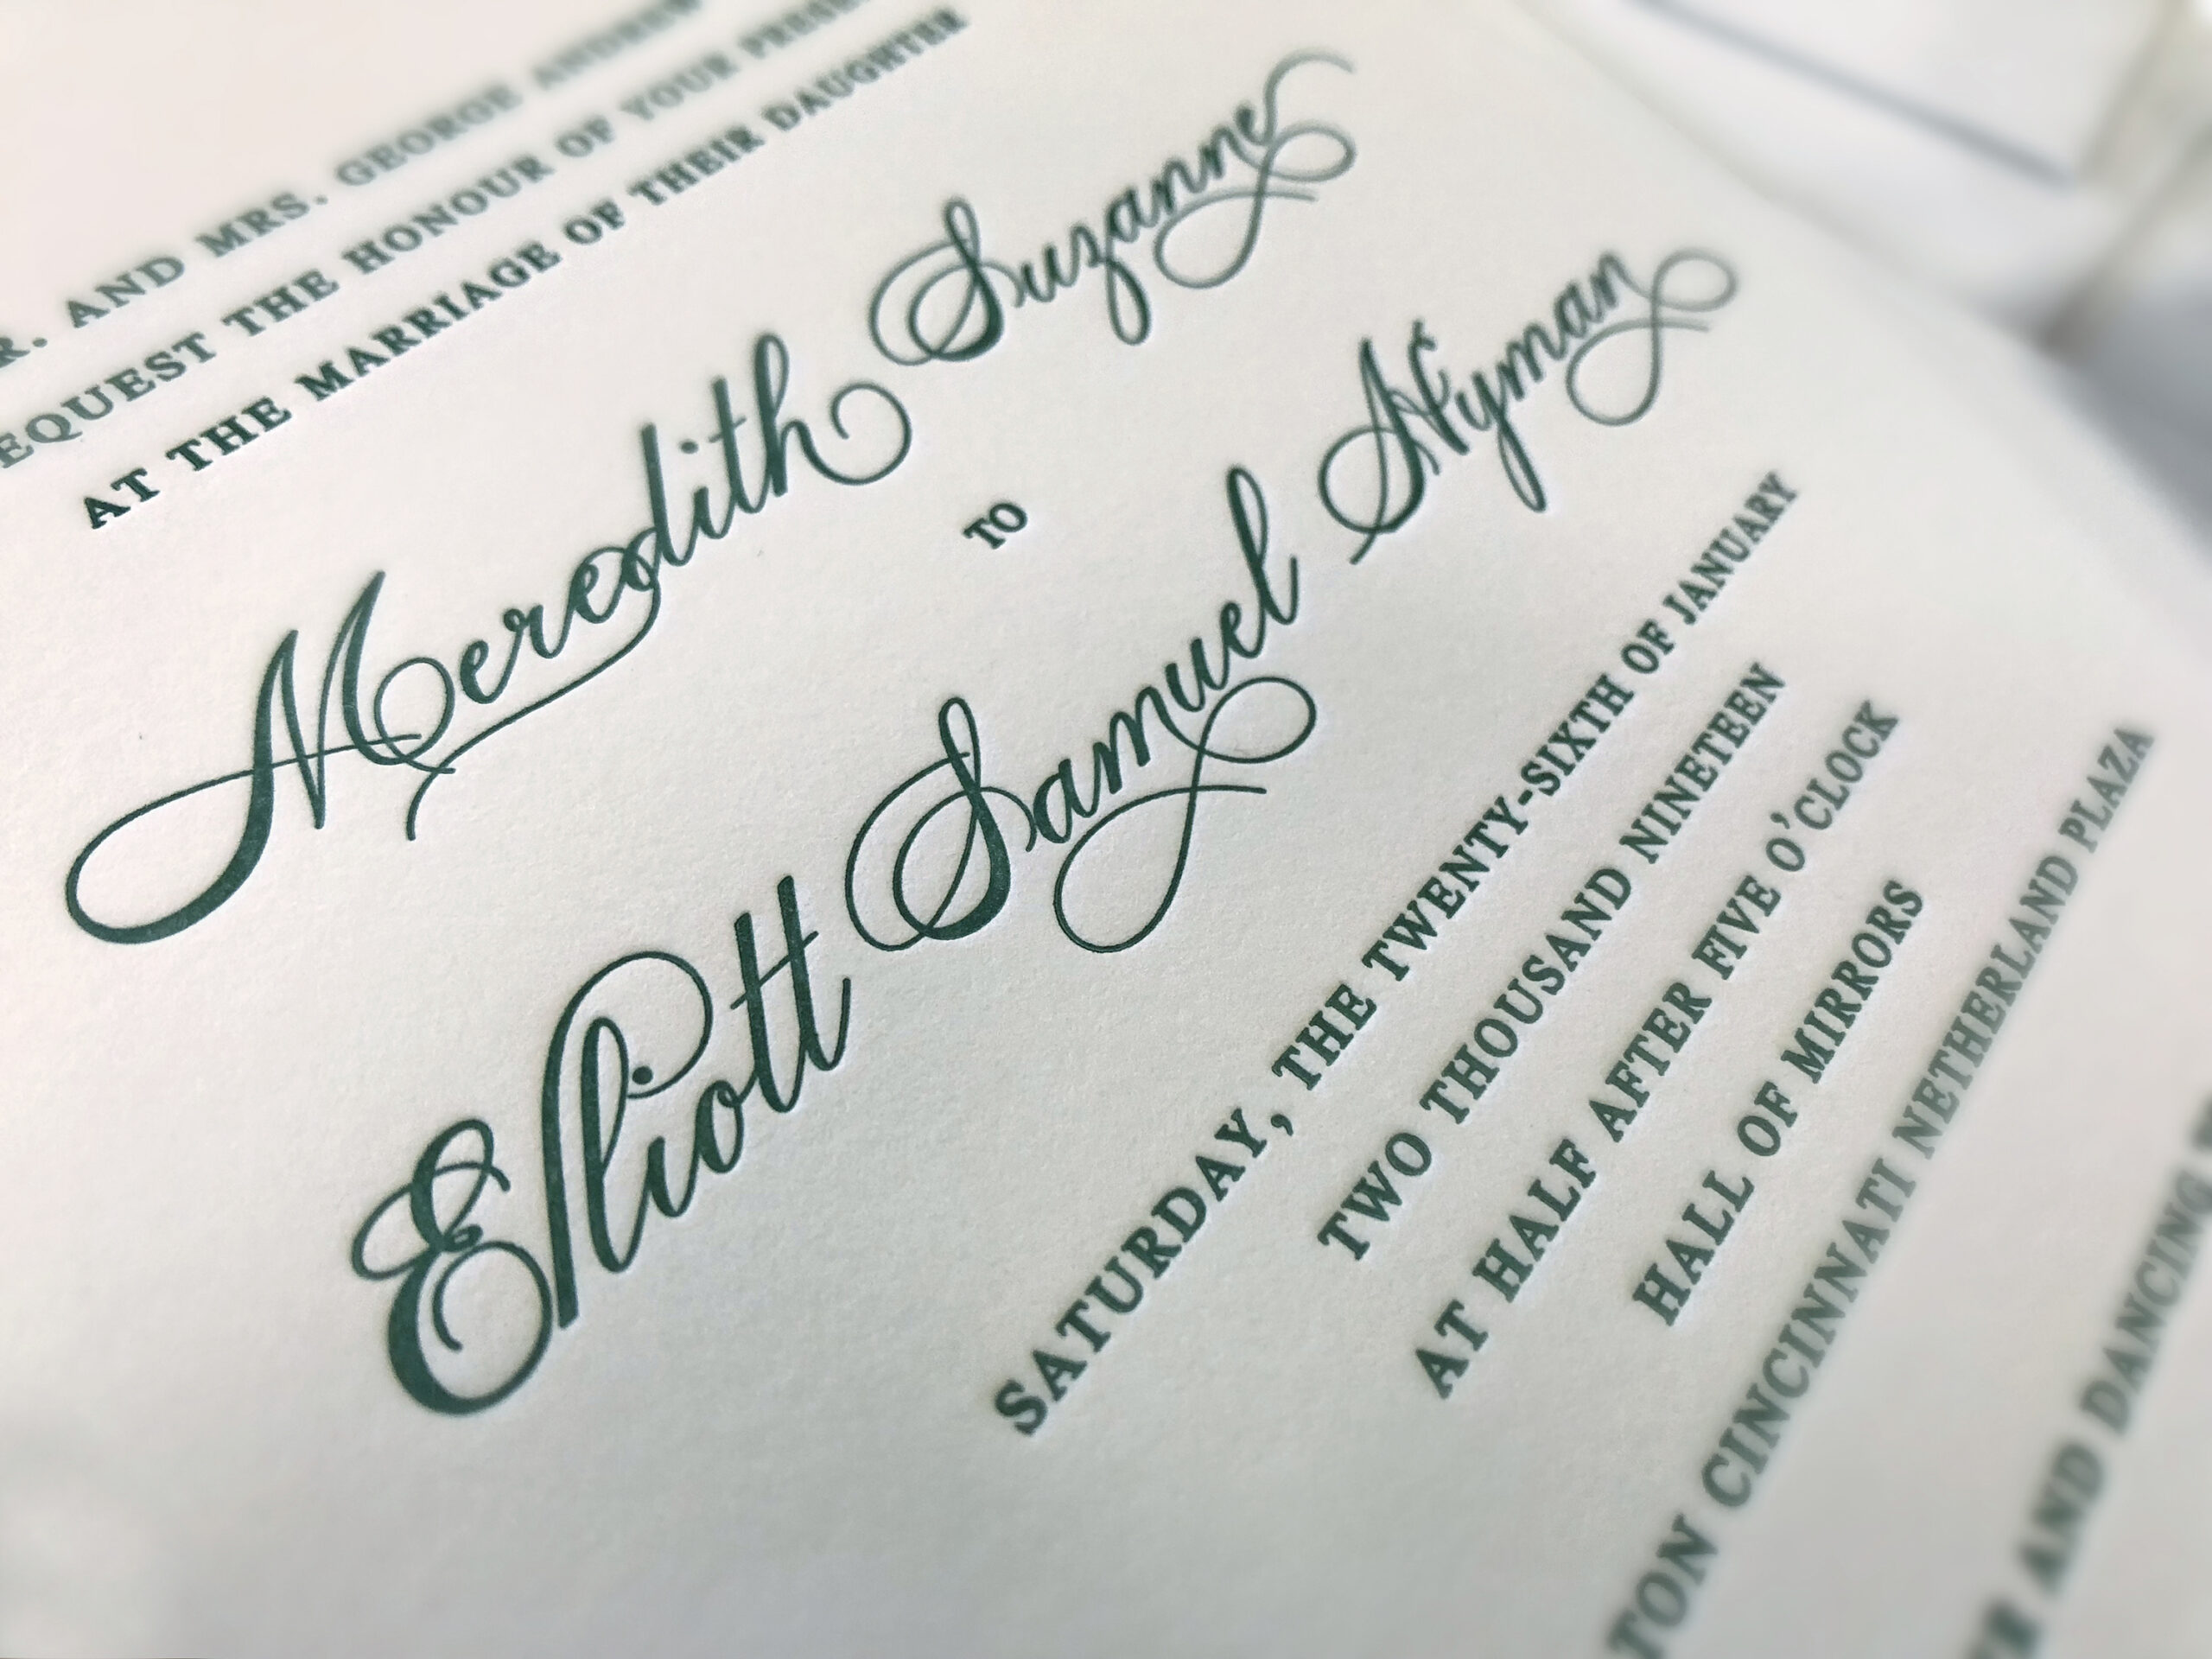 R. AND MRS. GEORGE ANDREW
EQUEST THE HONOUR OF YOUR PRESEN
AT THE MARRIAGE OF THEIR DAUGHTER
Meredith Suzanne
TO
Eliott Samuel Nyman
SATURDAY, THE TWENTY-SIXTH OF JANUARY
TWO THOUSAND NINETEEN
AT HALF AFTER FIVE O'CLOCK
HALL OF MIRRORS
TON CINCINNATI NETHERLAND PLAZA
AND DANCING